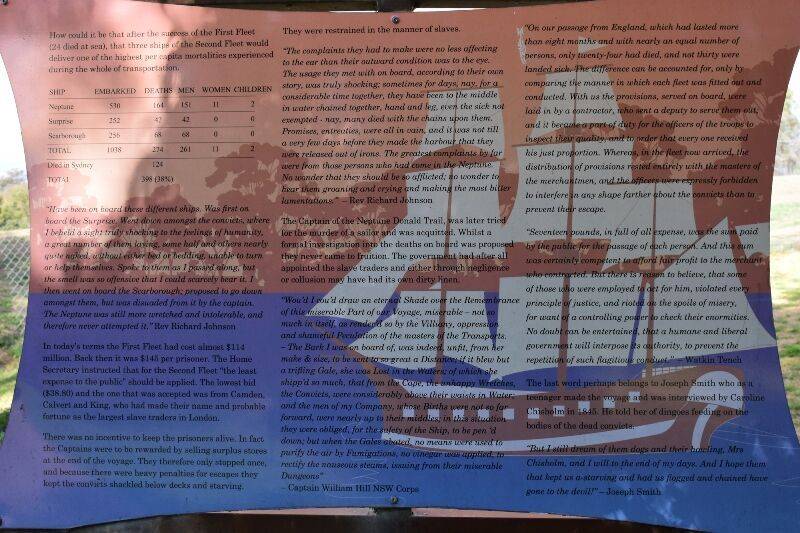 How could it be that after the success of the First Fleet
(24 died at sea), that three ships of the Second Fleet would
deliver one of the highest per capita mortalities experienced
during the whole of transportation.
SHIP EMBARKED DEATHS MEN WOMEN CHILDREN
Neptune 530 164 151 11 2
Surprise 252 42 42 0 0
Scarborough 256 68 68 0 0
TOTAL 1038 274 261 11 2
Died in Sydney 124
TOTAL 398 (38%)
"Have been on board these different ships. Was first on
board the Surprise. Went down amongst the convicts, where
I beheld a sight truly shocking to the feelings of humanity,
a great number of them laying, some half and others nearly
quite naked, without either bed or bedding, unable to turn
or help themselves. Spoke to them as I passed along,
the smell was so offensive that I could scarcely bear it. I
then went on board the Scarborough; proposed to go down
amongst them, but was disuaded from it by the captain.
The Neptune was still more wretched and intolerable, and
therefore never attempted it." Rev Richard Johnson
In today's terms the First Fleet had cost almost $114
million. Back then it was $145 per prisoner. The Home
Secretary instructed that for the Second Fleet "the least
expense to the public" should be applied. The lowest bid
($38.80) and the one that was accepted was from Camden,
Calvert and King, who had made their name and probable
fortune as the largest slave traders in London.
There was no incentive to keep the prisoners alive. In fact
the Captains were to be rewarded by selling surplus stores
at the end of the voyage. They therefore only stopped once,
and because there were heavy penalties for escapes they
kept the convicts shackled below decks and starving.
They were restrained in the manner of slaves.
"The complaints they had to make were no less affecting
to the ear than their outward condition was to the eye.
The usage they met with on board, according to their own
story, was truly shocking; sometimes for days, nay, for a
considerable time together, they have been to the middle
in water chained together, hand and leg, even the sick not
exempted - nay, many died with the chains upon them.
Promises, entreaties, were all in vain, and it was not till
a very few days before they made the harbour that they
were released out of irons. The greatest complaints by far
were from those persons who had come in the Neptune.
No wonder that they should be so afflicted; no wonder to
hear them groaning and crying and making the most bitter
lamentations." - Rev Richard Johnson
The Captain of the Neptune Donald Trail, was later tried
for the murder of a sailor and was acquitted. Whilst a
formal investigation of the deaths on board was proposed
they never came to fruition. The government had after all
appointed the slave traders and either through negligence
or collusion may have had its own dirty linen.
"Wou'd I cou'd draw an eternal Shade over the Remembrance
of this miserable Part of our Voyage, miserable – not so
much in itself, as rendered so by the Villiany, oppression
and shameful Peculation of the masters of the Transports.
– The Bark I was on board of, was indeed, unfit, from her
make & size, to be sent so great a Distance; if it blew but
a trifling Gale, she was lost in the Waters, of which she
shipp'd so much, that from the Cape, the unhappy Wretches,
the Convicts, were considerably above their waists in Water;
and the men of my Company, whose Births were not so far
forward, were nearly up to the middles; in this situation
they were obliged, for the safety of the Ship, to be pen 'd
down; but when the Gales abated, no means were used to
purify the air by Fumigations, no vinegar was applied, to
rectify the nauseous steams, issuing from their miserable
Dungeons"
– Captain William Hill NSW Corps
"On our passage from England, which had lasted more
than eight months and with nearly an equal number of
persons, only twenty-four had died, and not thirty were
landed sick. The difference can be accounted for, only by
comparing the manner in which each fleet was fitted out and
conducted. With us the provisions, served on board, were
laid in by a contractor, who sent a deputy to serve them out,
and it became a part of duty for the officers of the troops to
inspect their quality and to order that every one received
his just proportion. Whereas, in the fleet now arrived, the
distribution of provisions rested entirely with the masters of
the merchantmen, and the officers were expressly forbidden
to interfere in any shape farther about the convicts than to
prevent their escape.
"Seventeen pounds, in full of all expense, was the sum paid
by the public for the passage of each person. And this sum
was certainly competent to afford fair profit to the merchant
who contracted. But there is reason to believe, that some
of those who were employed to act for him, violated every
principle of justice, and rioted on the spoils of misery,
for want of a controlling power to check their enormities.
No doubt can be entertained, that a humane and liberal
government will interpose its authority, to prevent the
repetition of such flagitious conduct." – Watkin Tench
The last word perhaps belongs to Joseph Smith who as a
teenager made the voyage and was interviewed by Caroline
Chisholm in 1845. He told her of dingoes feeding on the
bodies of the dead convicts.
"But I still dream of them dogs and their howling, Mrs
Chisholm, and I will to the end of my days. And I hope them
that kept us a-starving and had us flogged and chained have
gone to the devil!" – Joseph Smith